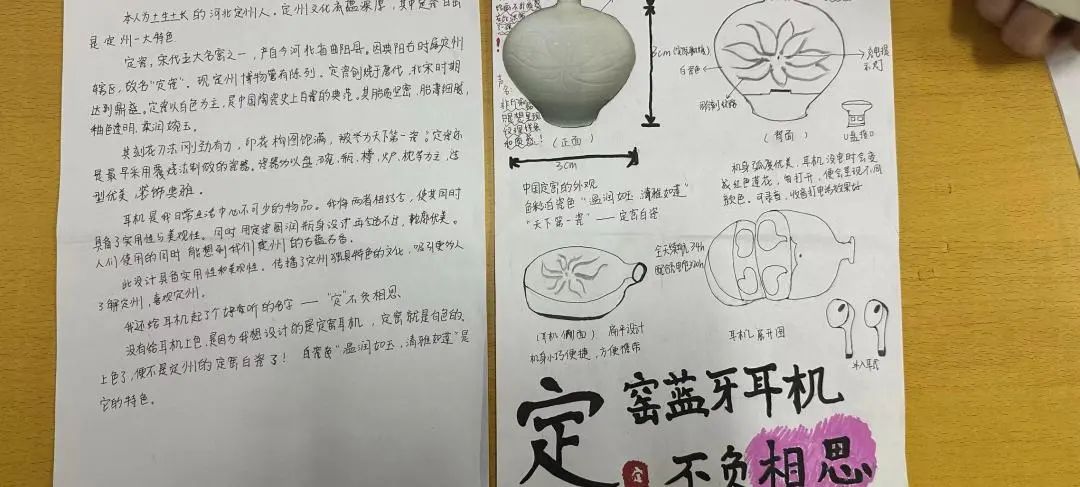 本人为土生土长的河北定州人。定州文化底蕴深厚,其中定瓷白出
是定州一大特色
定窑,宋代五大名窑之一,产自今河北省曲阳县。因曲阳古时属定州
辖区,故名“定瓷”。现定州博物馆有陈列。定窑创烧于唐代,北宋时期
达到鼎盛。定窑以白色为主,是中国陶瓷史上白瓷的典范。其胎质坚密,胎薄细腻,
釉色透明,柔润媲玉。
其刻花刀法刚劲有力,印花构图饱满,被誉为天下第一瓷。定窑还
是最早采用覆烧法制成的瓷器。瓷器以盘、碗、瓶、樽、炉、枕等为主,造
型优美,装饰典雅。
耳机是我日常生活中必不可少的物品。我将两者相结合,使其同时
具备了实用性与美观性。同时用定窑圆润瓶身设计再合适不过,轮廓优美。
人们使用的同时能想到我们定州的古蕴古香。
此设计具备实用性和美观性。传播了定州独具特色的文化,吸引更多人
了解定州,喜欢定州。
我还给耳机起了个好听的名字——“定”不负相思
没有给耳机上色,是因为我想设计的是定窑耳机,定窑就是白色的,
上色了,便不是定州的定窑白瓷了!白瓷色“温润如玉,清雅如莲”是
它的特色。
3cm
(正面)
3cm
中国定窑的外观
色彩白瓷色“温润如玉,清雅如莲”
“天下第一瓷”——定窑白瓷
白瓷色
充电提
示灯
U盘接口
(背面)
机身弧度优美,耳机没电时会变
成红色莲花,每打开,便会呈现不同
颜色。可录音,收音打电话效果好
(耳机侧面)扁平设计
机身小巧便捷,方便携带
全天续航34h
耳机展开图
半入耳式
定
窑蓝牙耳机
定
不负相思